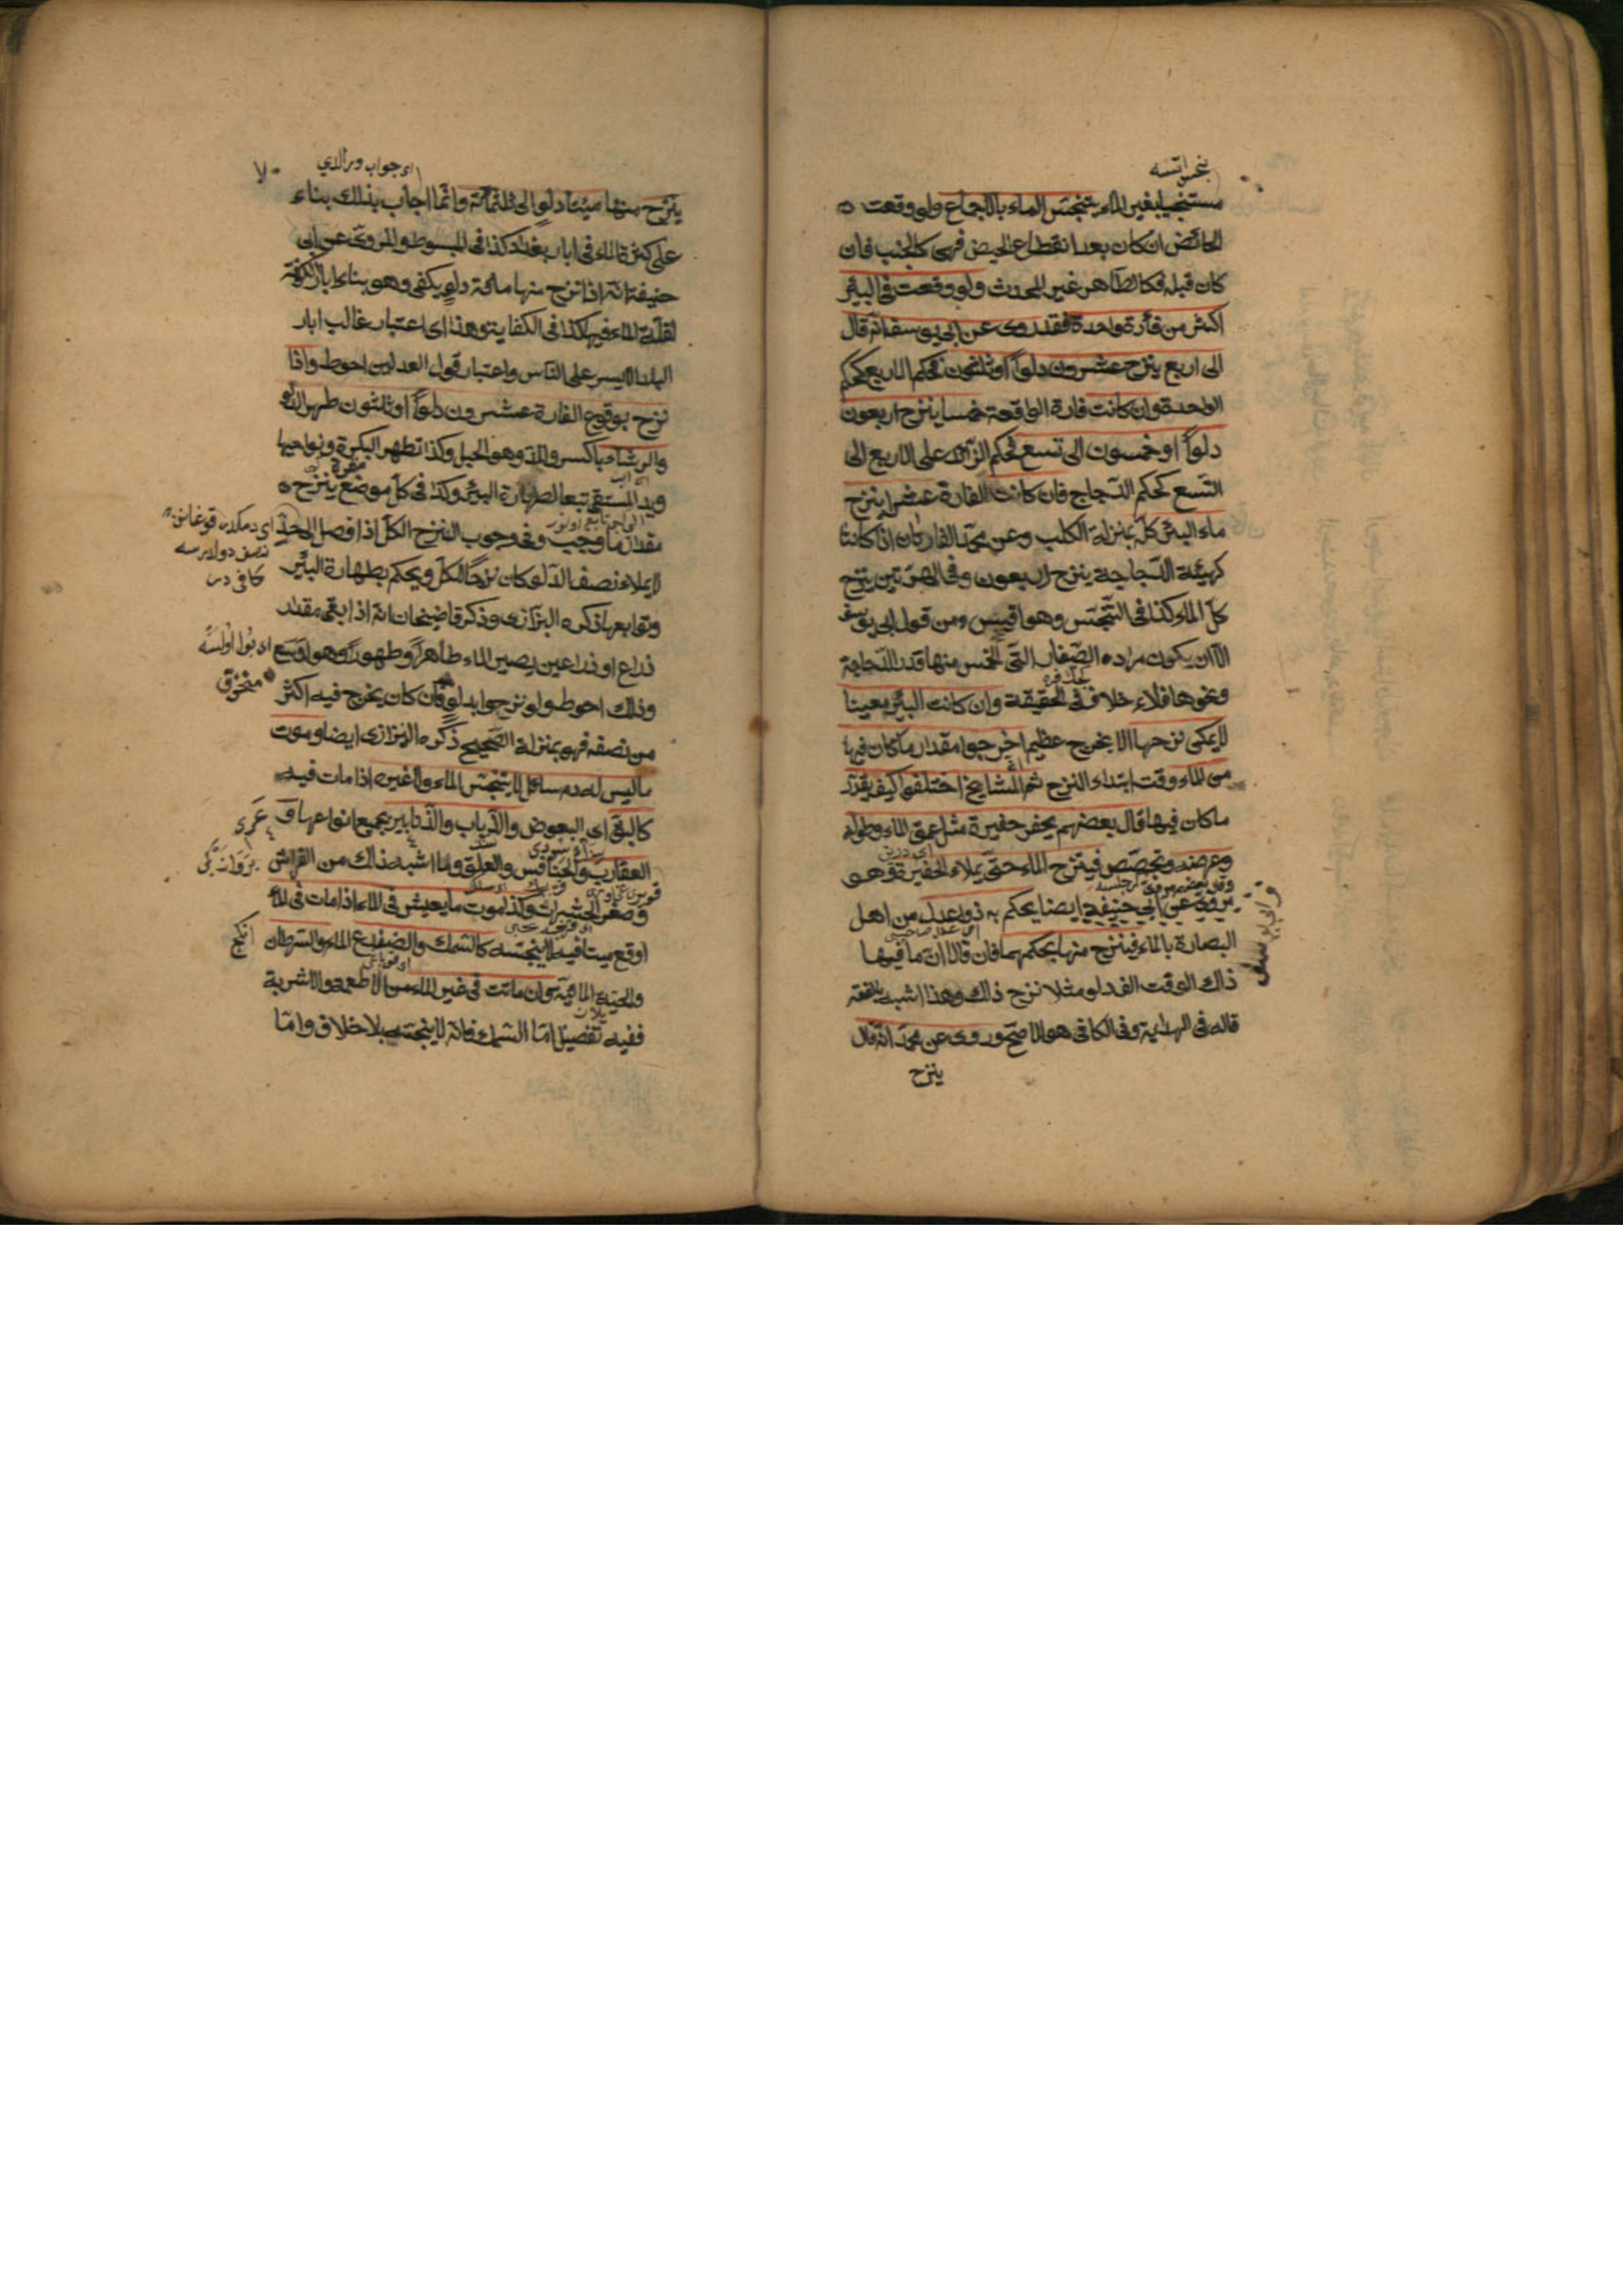 مستنجيا بغير الماء يتنجس الماء بالاجماع ولو وقعت
الحائض ان كان بعد انقطاع الحيض فهي كالجنب فان
كان قبله فكالطاهر غير المحدث ولو وقعت في البئر
اكثر من فأرة واحدة فقد روى عن ابي يوسف انه قال
الى اربع ينزح عشرون دلوا او ثلثون فحكم الاربع كحكم
الواحدة وان كانت فارة الواقعة خمسا ينزح اربعون
دلوا او خمسون الى تسع فحكم الزائد على الاربع الى
التسع كحكم الدجاج فان كانت الفارة عشرا ينزح
ماء البئر كله بمنزلة الكلب وعن محمد الفارتان اذا كانتا
كهيئة الدجاجة ينزح اربعون وفي الهرتين ينزح
كل الماء كذا في التجنس وهو اقيس ومن قول ابي يوسف
الا ان يكون مراده الصغار التي الخمس منها قدر الدجاجة
ونحوها فلا خلاف في الحقيقة وان كانت البئر معينا
لا يمكن نزحها الا بخرج عظيم اخرجوا مقدار ما كان فيها
من الماء وقت ابتداء النزح ثم المشايخ اختلفوا كيف يقدر
ما كان فيها قال بعضهم يحفر حفيرة مثل عمق الماء وطوله
وعرضه وتجصص فينزح الماء حتى يملاء الحفيرة وهو
مروى عن ابي حنيفة ايضا يحكم به ذوا عدل من اهل
البصارة بالماء فينزح منها بحكمهما فان قالا ان ما فيها
ذلك الوقت الف دلو مثلا نزح ذلك وهذا اشبه بالفقه
قاله في الهداية وفي الكافي هو الاصح وروى عن محمد انه قال
ينزح
اى جواب ويرالدي
ينزح منها مئتا دلو الى ثلثمائة وانما اجاب بذلك بناء
على كثرة الماء في ابار بغداد كذا في المبسوط والمروى عن ابي
حنيفة انه اذا نزح منها مائة دلو يكفي وهو بناء ابار الكوفة
لقلة الماء فيها كذا في الكفاية وهذا اى اعتبار غالب ابار
البلد الايسر على الناس واعتبار قول العدلين احوط واذا
نزح بوقوع الفارة عشرون دلوا او ثلثون طهر الدلو
والرشاء بالكسر والمد وهو الحبل وكذا تطهر البكرة ونواحيها
ويد المستقي تبعا لطهارة البئر وكذا في كل موضع ينزح
مقدار ما وجب وفي وجوب النزح الكل اذا وصل الى حد
لا يملاء نصف الدلو كان نزحا للكل ويحكم بطهارة البئر
وتوابعها ذكره البزازى وذكر قاضيخان انه اذا بقى مقدار
ذراع او ذراعين يصير الماء طاهرا وطهورا وهو اوسع
وذلك احوط ولو نزحوا بدلو فان كان يخرج فيه اكثر
من نصفه فهو بمنزلة الصحيح ذكره البزازى ايضا وموت
ما ليس له دم سائل لا يتنجس الماء ولا غيره اذا مات فيه
كالبق اى البعوض والذباب والذنابير بجميع انواعها و
العقارب والخنافس والعلق وما اشبه ذلك من الفراش
وصغار الحشرات وكذا موت ما يعيش في الماء اذا مات في الماء
او وقع ميتا فيه لا ينجسه كالسمك والضفدع الماء والسرطان
والحية المائية وان ماتت في غير الماء من الاطعمة والاشربة
ففيه تفصيل اما السمك فانه لا ينجسه بلا خلاف واما